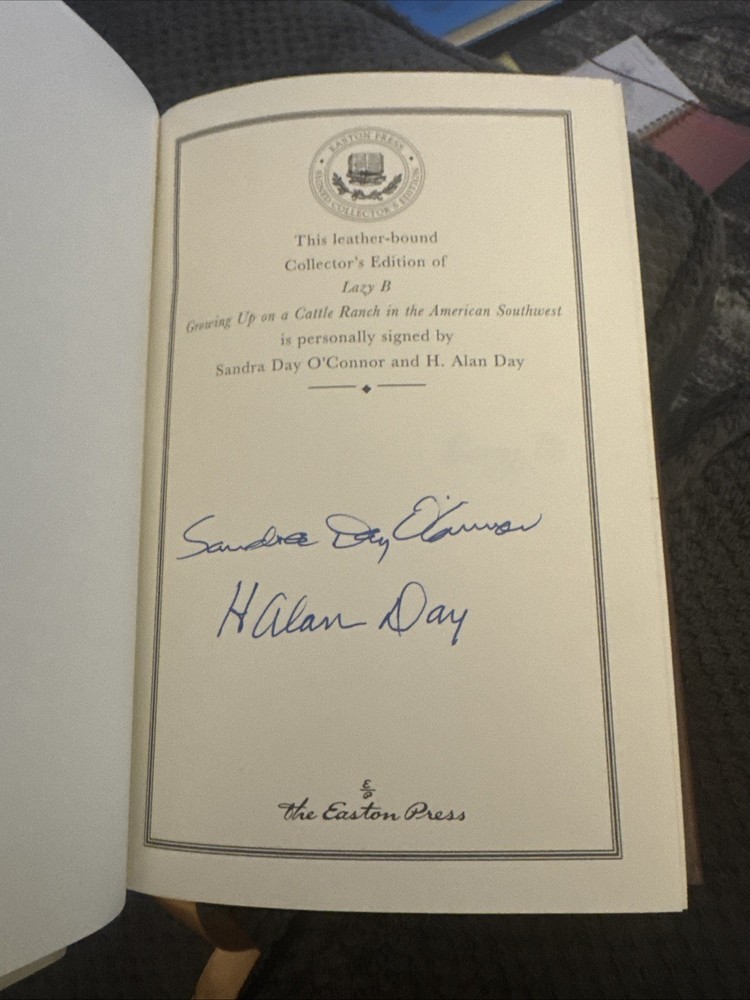 EASTON PRESS
SIGNED COLLECTOR'S EDITION
This leather-bound
Collector's Edition of
Lazy B
Growing Up on a Cattle Ranch in the American Southwest
is personally signed by
Sandra Day O'Connor and H. Alan Day
Sandra Day O'Connor
H Alan Day
The Easton Press